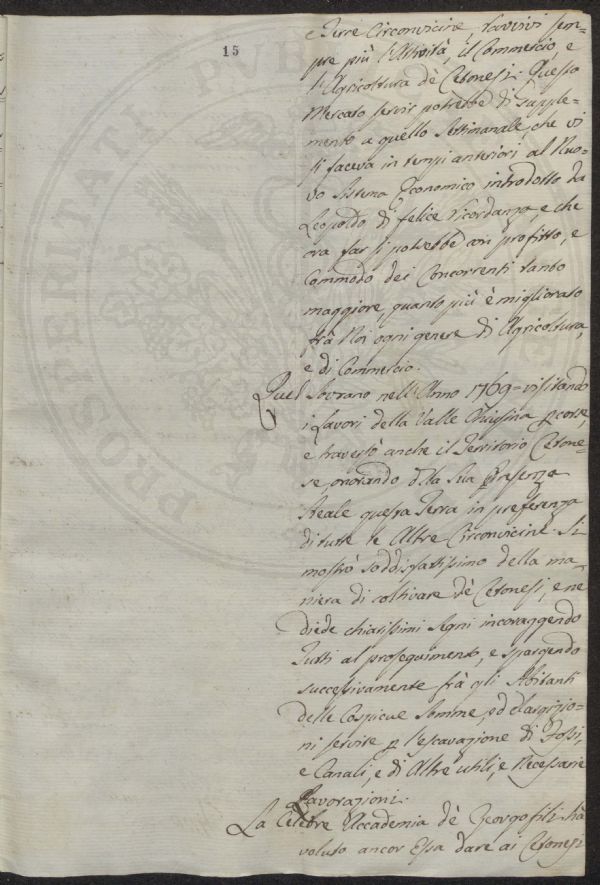 15
e Terre Circonvicine, ravvivi sem=
pre più l'Attività, il Commercio, e
l'Agricoltura dè Cetonesi. Questo
Mercato servir potrebbe di Supple=
mento a quello Settimanale, che vi
si faceva in tempi anteriori al Nuo=
vo Sistema Economico introdotto da
Leopoldo di felice ricordanza, e che
ora far si potrebbe con profitto, e
Commodo dei Concorrenti tanto
maggiore, quanto più è migliorato
frà Noi ogni genere di Agricoltura,
e di Commercio.
Quel Sovrano nell'Anno 1769= visitando
i Lavori della Valle Chiusina percorse,
e traversò anche il Territorio Cetone=
se, onorando della Sua Presenza
Reale questa Terra in preferenza
di tutte le Altre Circonvicine Si
mostrò soddisfattissimo della ma=
niera di coltivare dè Cetonesi, e ne
diede chiarissimi segni incoraggendo
Tutti al proseguimento, e spargendo
successivamente frà gli Abitanti
delle Cospicue Somme, ed elargizio=
ni servite p l'escavazione di Fossi,
e Canali, e di Altre utili, e Necessarie
Lavorazioni.
La Celebre Accademia dè Georgofili hà
voluto ancor Essa dare ai Cetonesi
PROSP
PVB